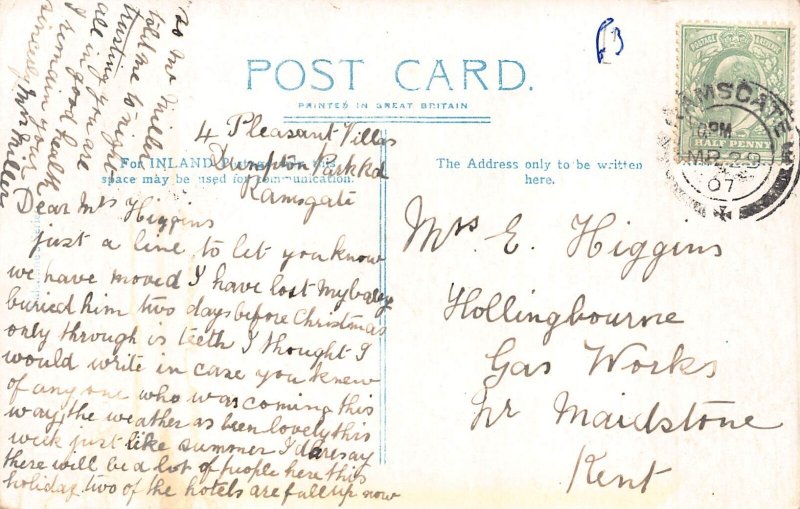 POST CARD.
PRINTED IN GREAT BRITAIN
For INLAND Postage only this
space may be used for communication.
The Address only to be written
here.
4 Pleasant Villas
Dumpton Park Rd
Ramsgate
Dear Mrs Higgins
just a line to let you know
we have moved I have lost my baby
buried him two days before Christmas
only through is teeth I thought I
would write in case you knew
of any one who was coming this
way, the weather as been lovely this
week just like summer I daresay
there will be a lot of people here this
holiday two of the hotels are full up now
as Mr Miller
told me to night
trusting you are
all in good health
I remain yours
sincerely Mrs Miller
Mrs E. Higgins
Hollingbourne
Gas Works
Nr Maidstone
Kent
POSTAGE
HALF PENNY
RAMSGATE
PM
MR 29
07